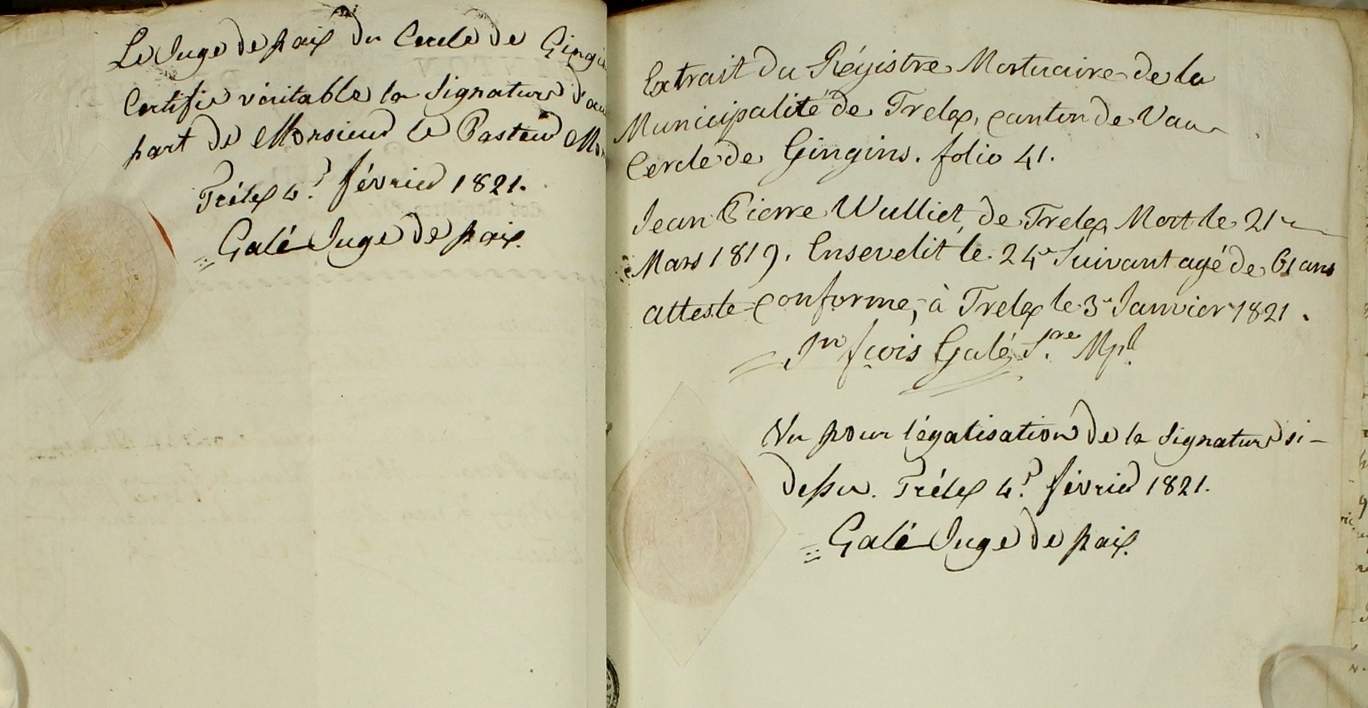 Le Juge de paix du Cercle de Gingi
Certifie véritable la Signature d'au
part de Monsieur le Pasteur Mo
Trélex 4.e février 1821.
Galé Juge de paix
Extrait du Régistre Mortuaire de la
Municipalité de Trelex, canton de Vau
Cercle de Gingins. folio 41.
Jean Pierre Wulliet, de Trelex Mort le 21
Mars 1819. Ensevelit le 24e Suivant agé de 61 ans
atteste conforme, à Trelex le 3e Janvier 1821.
Jn fçois Galé S.re Mpl
Vu pour légalisation de la Signature si-
dessu. Trélex 4.e février 1821.
Galé Juge de paix